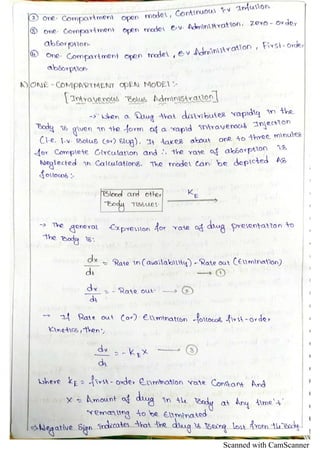 ② one-Compartment open model, Continuous I.v Infusion
③ one-Compartment open model e.v Administration, Zero-order
absorption
④ one-Compartment open model, e.v Administration, First-order
absorption
A) ONE-COMPARTMENT OPEN MODEL:-
Intravenous Bolus Administration
→ When a Drug that distributes rapidly in the
Body is given in the form of a rapid Intravenous Injection
(i.e. I.v Bolus (or) Slug). It takes about one to three minutes
for Complete Circulation and ∴ the rate of absorption is
Neglected in Calculations. The model Can be depicted AS
follows:-
Blood and other
Body Tissues
KE
→ The general Expression for rate of drug presentation to
the Body is:
dx/dt = Rate in (availability) - Rate out (Elimination)
→ ①
dx/dt = - Rate out → ②
→ If Rate out (or) Elimination follows first-order
Kinetics, Then:,
dx/dt = - KEX → ③
Where KE = first-order Elimination rate Constant And
X = Amount of drug in the Body at Any time 't'
remaining to be Eliminated
⇒ Negative Sign Indicates that the drug is Being lost from the Body.
Scanned with CamScanner